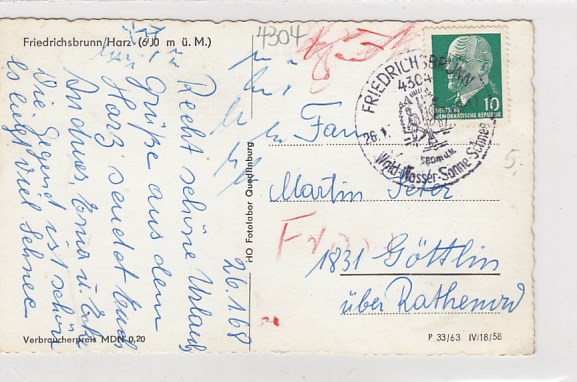 Friedrichsbrunn/Harz (6)0 m ü. M.)
4304
Recht schöne Urlaubs
Grüße aus dem
Harz sendet Euch
Die Gegend ist schön
es liegt viel Schnee
26.1.68
HO Fotolabor Quedlinburg
Verbraucherpreis MDN 0,20
FRIEDRICHSBRUNN
4304
26.1.
580 m ü. M.
Wald-Wasser-Sonne-Schnee
10
DEUTSCHE
DEMOKRATISCHE REPUBLIK
Fam
Martin Peter
1831 Göttlin
über Rathenow
5.-
P 33/63 IV/18/58